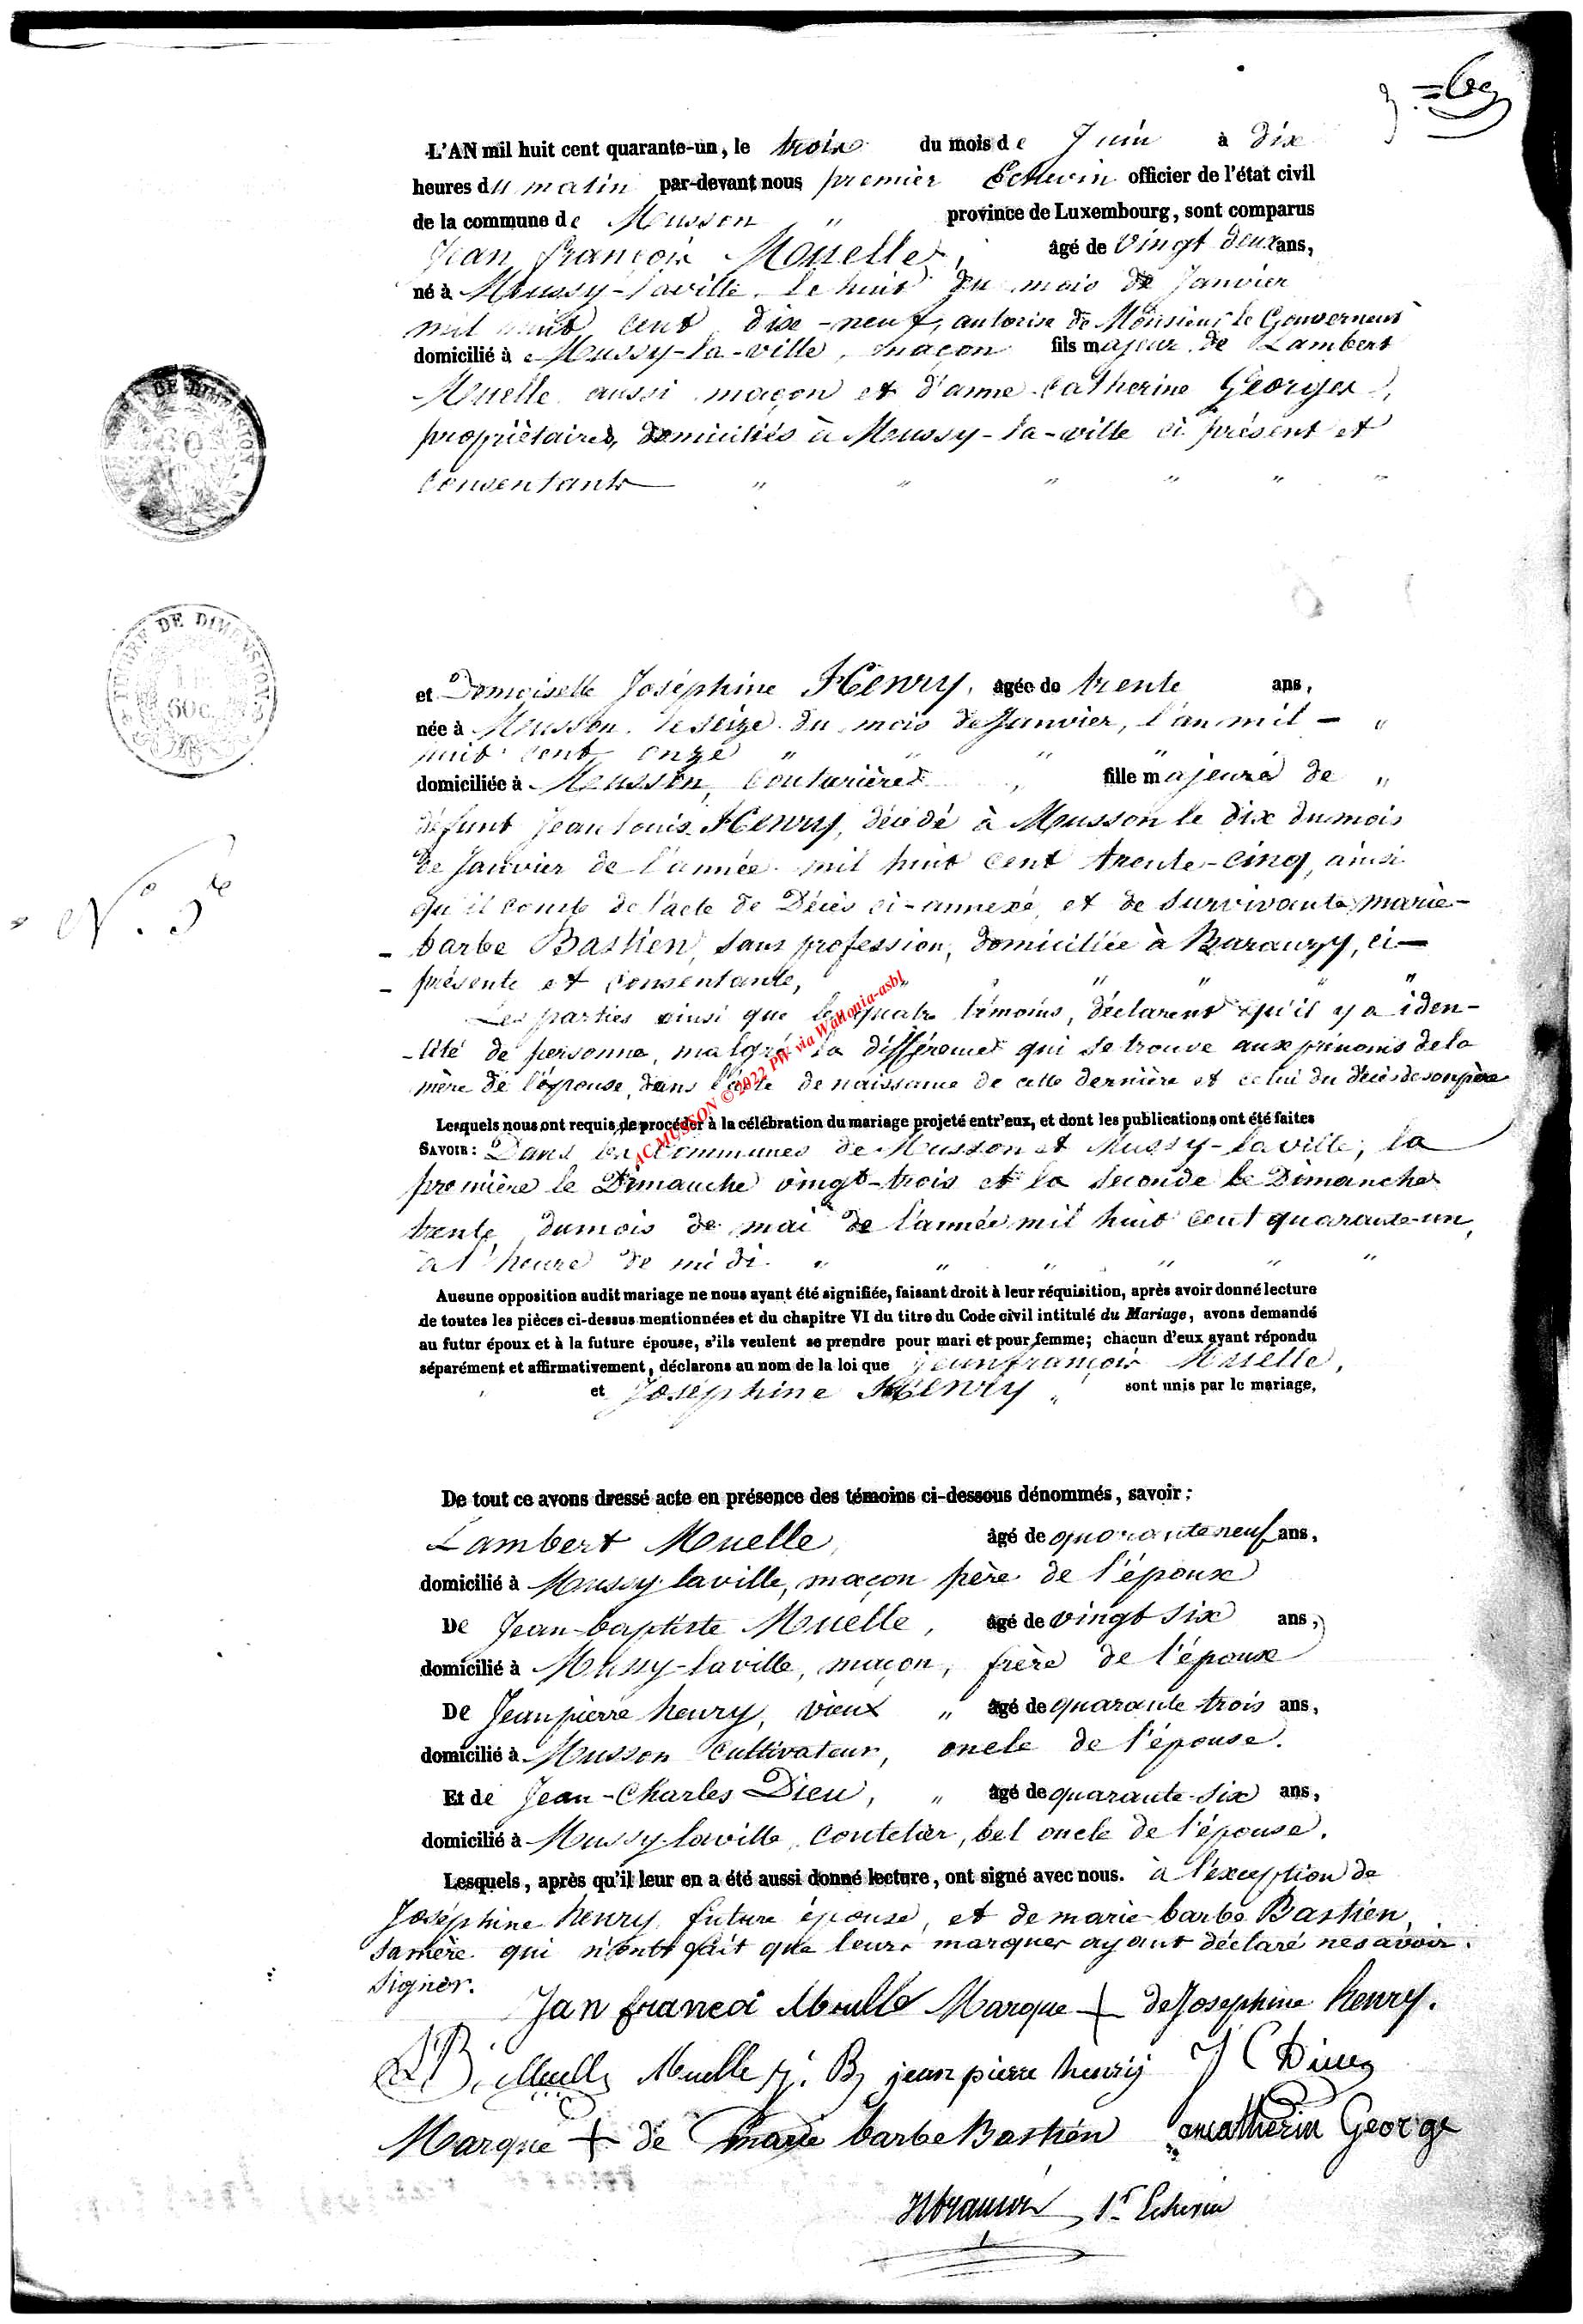 L'AN mil huit cent quarante-un, le trois du mois de Juin à dix
heures du matin par-devant nous premier Echevin officier de l'état civil
de la commune de Musson " province de Luxembourg, sont comparus
Jean françois Mouelle, âgé de vingt deux ans,
né à Mussy-laville, le huit du mois de Janvier
mil huit cent dix-neuf, autorisé de Monsieur le Gouverneur
domicilié à Mussy-la-ville, maçon fils majeur de Lambert
Muelle aussi maçon et d'anne catherine Georges,
propriétaires, domiciliés à Mussy-la-ville ci présent et
consentants " " " " " "
TIMBRE DE DIMENSION
60c
et Demoiselle Joséphine HEnry, âgée de trente ans,
née à Musson, le seize du mois de Janvier, l'an mil - "
huit cent onze " " " "
domiciliée à Musson, Couturière, fille majeure de "
défunt Jean louis HEnry, décédé à Musson le dix du mois
de Janvier de l'année mil huit cent trente-cinq, ainsi
N.° 5
qu'il conste de l'acte de Décès ci-annexé, et de survivante marie-
- barbe Bastien, sans profession, domiciliée à Baranzy, ci-
- présente et consentante, " " " "
Les parties ainsi que les quatre témoins, déclarent qu'il y a iden-
-tité de personne, malgré la différence qui se trouve aux prénoms de la
mère de l'épouse, dans l'acte de naissance de cette dernière et celui du décès de son père
AC MUSSON ©2022 PW via Wallonia-asbl
Lesquels nous ont requis de procéder à la célébration du mariage projeté entr'eux, et dont les publications ont été faites
SAVOIR: Dans les Communes de Musson et Mussy-la ville, la
première le Dimanche vingt-trois et la seconde le Dimanche
trente du mois de mai de l'année mil huit cent quarante-un,
à l'heure de midi. " " " " " "
Aucune opposition audit mariage ne nous ayant été signifiée, faisant droit à leur réquisition, après avoir donné lecture
de toutes les pièces ci-dessus mentionnées et du chapitre VI du titre du Code civil intitulé du Mariage, avons demandé
au futur époux et à la future épouse, s'ils veulent se prendre pour mari et pour femme; chacun d'eux ayant répondu
séparément et affirmativement, déclarons au nom de la loi que jean françois Muelle,
et Joséphine HEnry " sont unis par le mariage,
De tout ce avons dressé acte en présence des témoins ci-dessous dénommés, savoir:
Lambert Muelle, âgé de quarante neuf ans,
domicilié à Mussy laville, maçon père de l'époux
De Jean-baptiste Muelle, âgé de vingt six ans,
domicilié à Mussy-laville, maçon, frère de l'époux
De Jean pierre henry, vieux " âgé de quarante trois ans,
domicilié à Musson Cultivateur, oncle de l'épouse.
Et de Jean-Charles Dieu, " âgé de quarante-six ans,
domicilié à Mussy laville, coutelier, bel oncle de l'épouse.
Lesquels, après qu'il leur en a été aussi donné lecture, ont signé avec nous. à l'exception de
Joséphine henry future épouse, et de marie-barbe Bastien,
sa mère qui n'ont fait que leurs marques ayant déclaré ne savoir
signer.
Jan francoi Mouelle Marque + de Josephine henry.
Muelle Muelle j. B jean pierre henrij J C Dieu
Marque + de marie barbe Bastien anecatherin George
1r Echevin